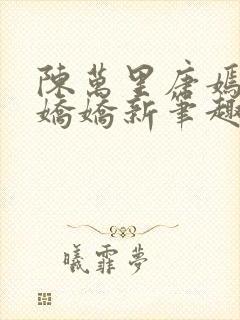 陳萬里唐嫣
嬌嬌新筆趣
曦霏夢